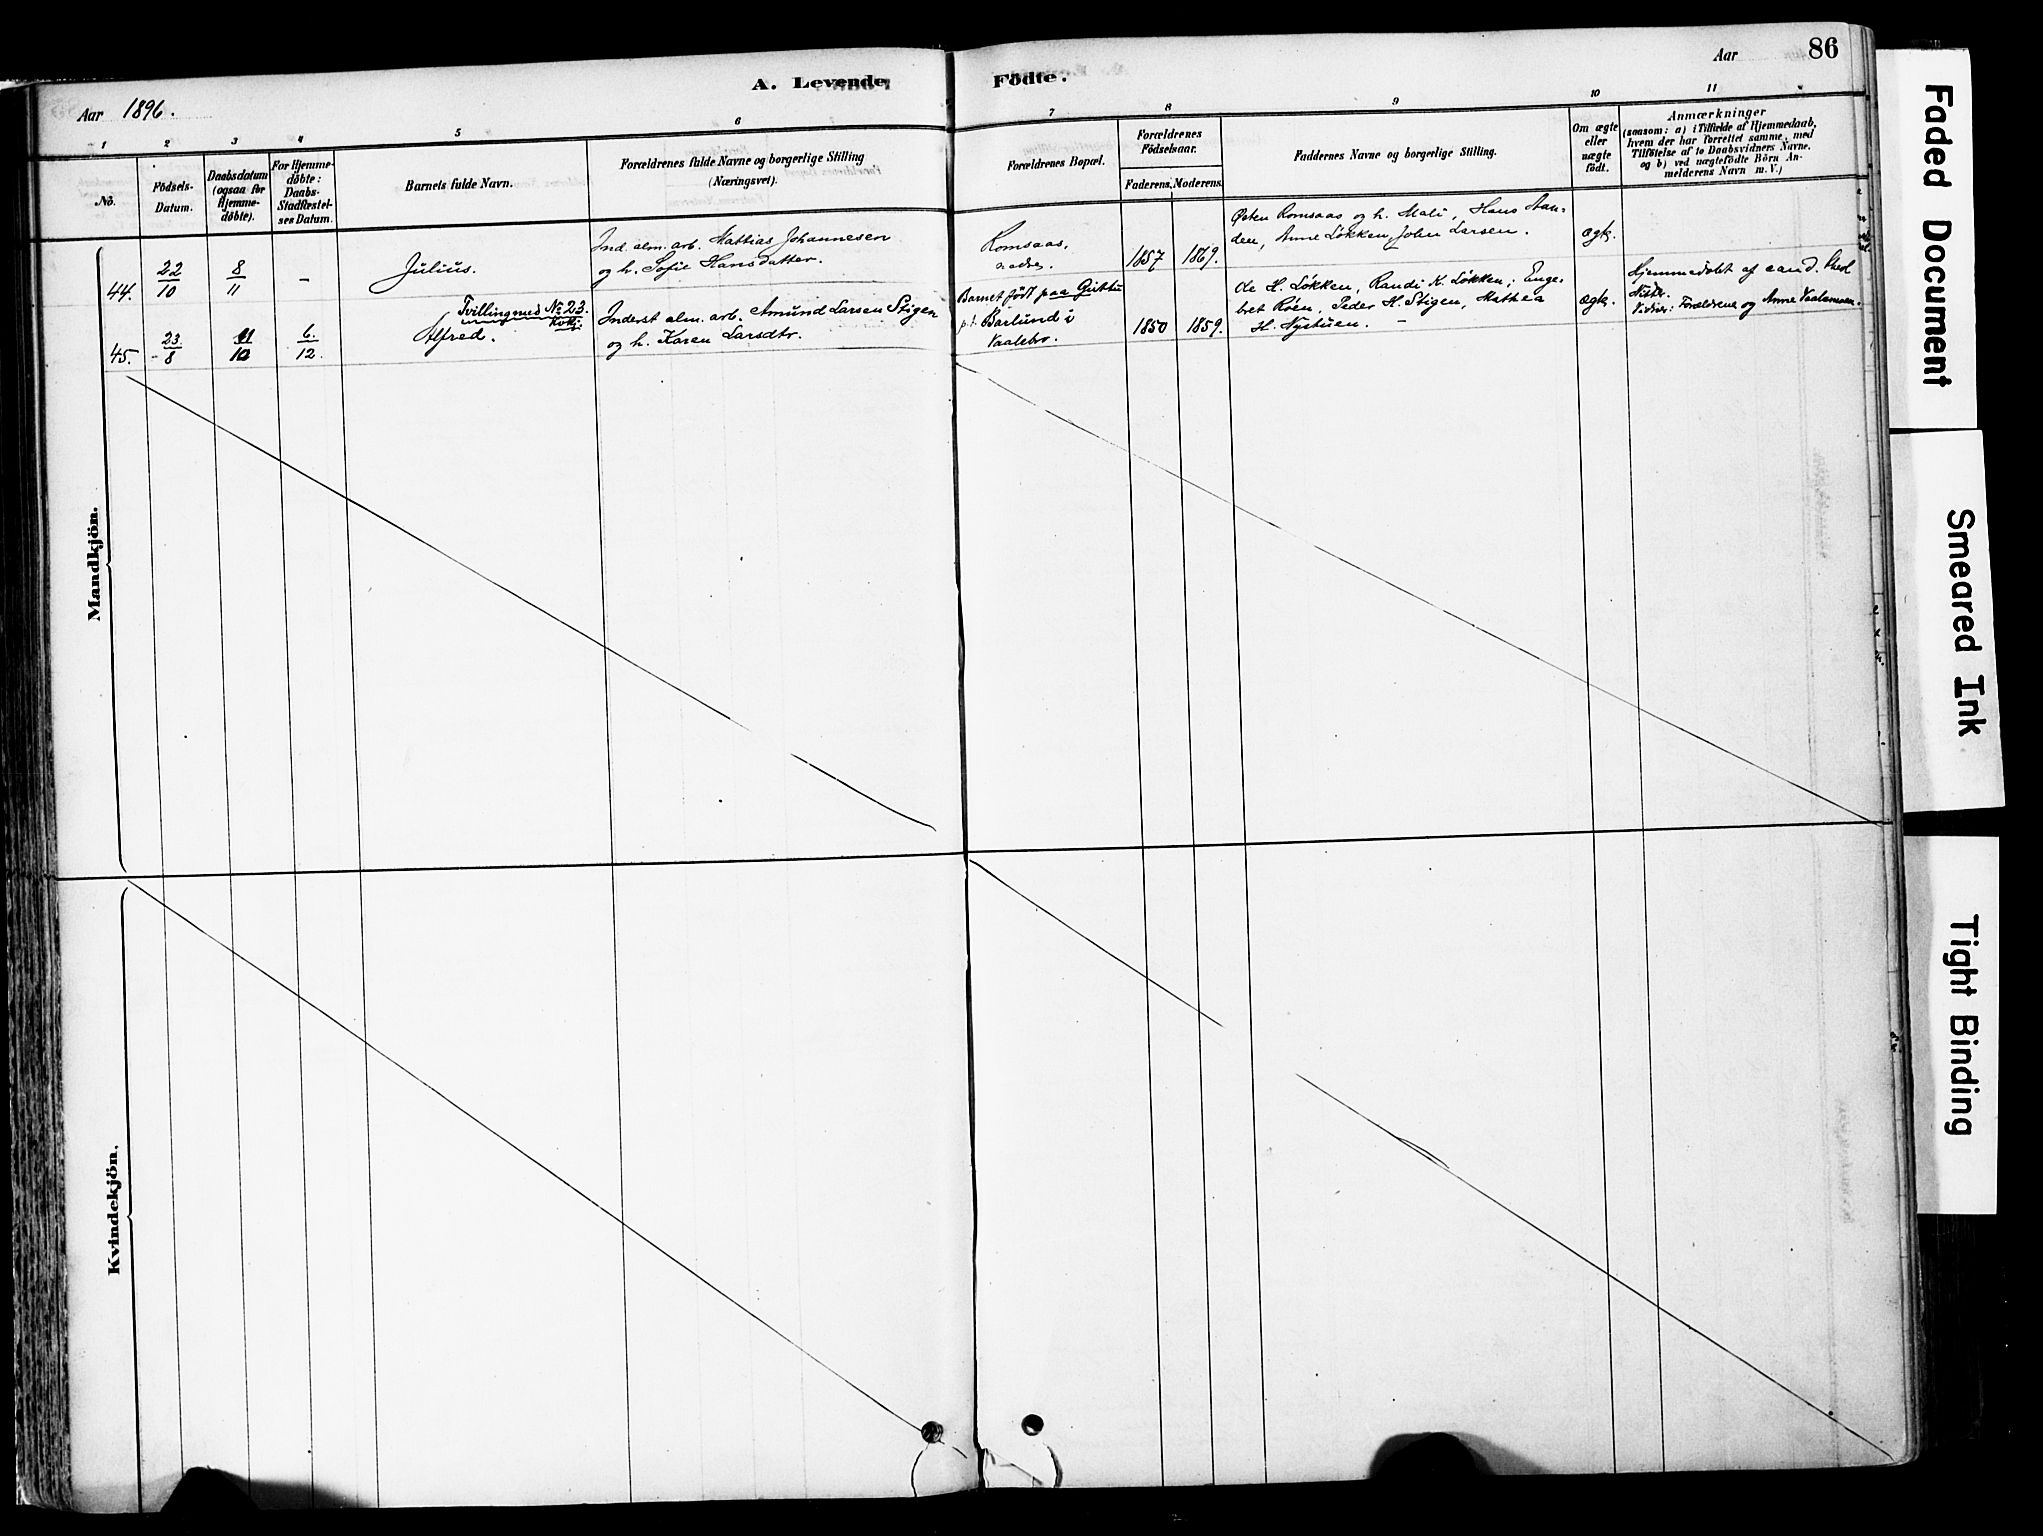 Aar 1896.
A. Levende
Födte.
Aar
86
1
2
3
4
5
6
7
8
9
10
11
No.
Födsels-
Datum.
Daabsdatum
(ogsaa for
Hjemme-
döbte).
For Hjemme-
döbte:
Daabs-
Stadfæstel-
ses Datum.
Barnets fulde Navn.
Forældrenes fulde Navne og borgerlige Stilling
(Næringsvei).
Forældrenes Bopæl.
Forældrenes
Födselsaar.
Faderens.
Moderens.
Faddernes Navne og borgerlige Stilling.
Om ægte
eller
uægte
født.
Anmærkninger
(saasom: a) i Tilfælde af Hjemmedaab,
hvem der har forrettet samme, med
Tilföielse af to Daabsvidners Navne,
og b) ved uægtefödte Börn An-
melderens Navn m. V.)
Mandkjön.
44.
22/10
8/11
–
Julius.
Ind. alm. arb. Mattias Johannesen
og h. Sofie Hansdatter.
Romsaas,
1857
1869.
Østen Romsaas og h. Mali, Hans Aan-
den, Anne Løkken, John Larsen.
ægte.
45.
23/8
11/10
6/12.
Tvilling med No 23.
Kvkj.
Alfred.
Inderst alm. arb. Amund Larsen Stigen
og h. Karen Larsdtr.
Barnet født paa
p.t. Barlund i
Vaalebro.
1850
1859.
Ole H. Løkken, Randi K. Løkken, Enge-
bret Röen, Peder H. Stigen, Mathea
H. Nystuen. –
ægte.
Hjemmedøbt af cand.
Vidner: Forældrene og Anne
Kvindekjön.
Faded Document
Smeared Ink
Tight Binding